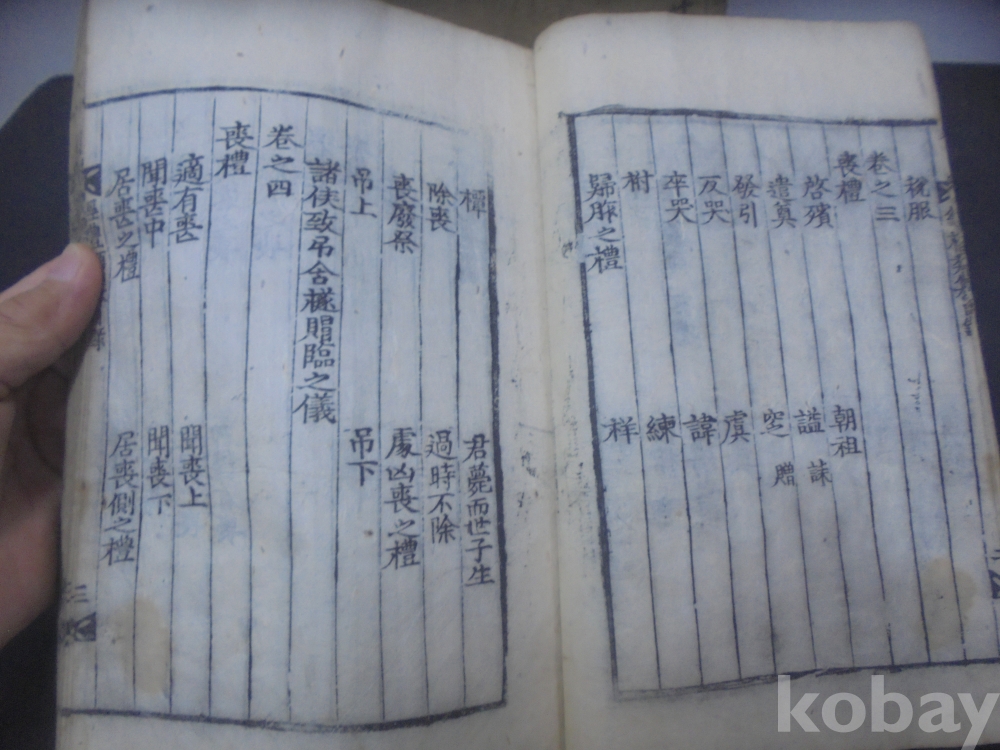 稅服
卷之三
喪禮
啓殯 朝祖
遣奠 謚 誄
發引 窆 贈
反哭 虞
卒哭 諱
祔 練
歸胙之禮 祥
禫 君薨而世子生
除喪 過時不除
喪廢祭 處凶喪之禮
吊上 吊下
諸侯致吊含襚賵臨之儀
卷之四
喪禮
適有喪 聞喪上
聞喪中 聞喪下
居喪之禮 居喪側之禮
二
kobay